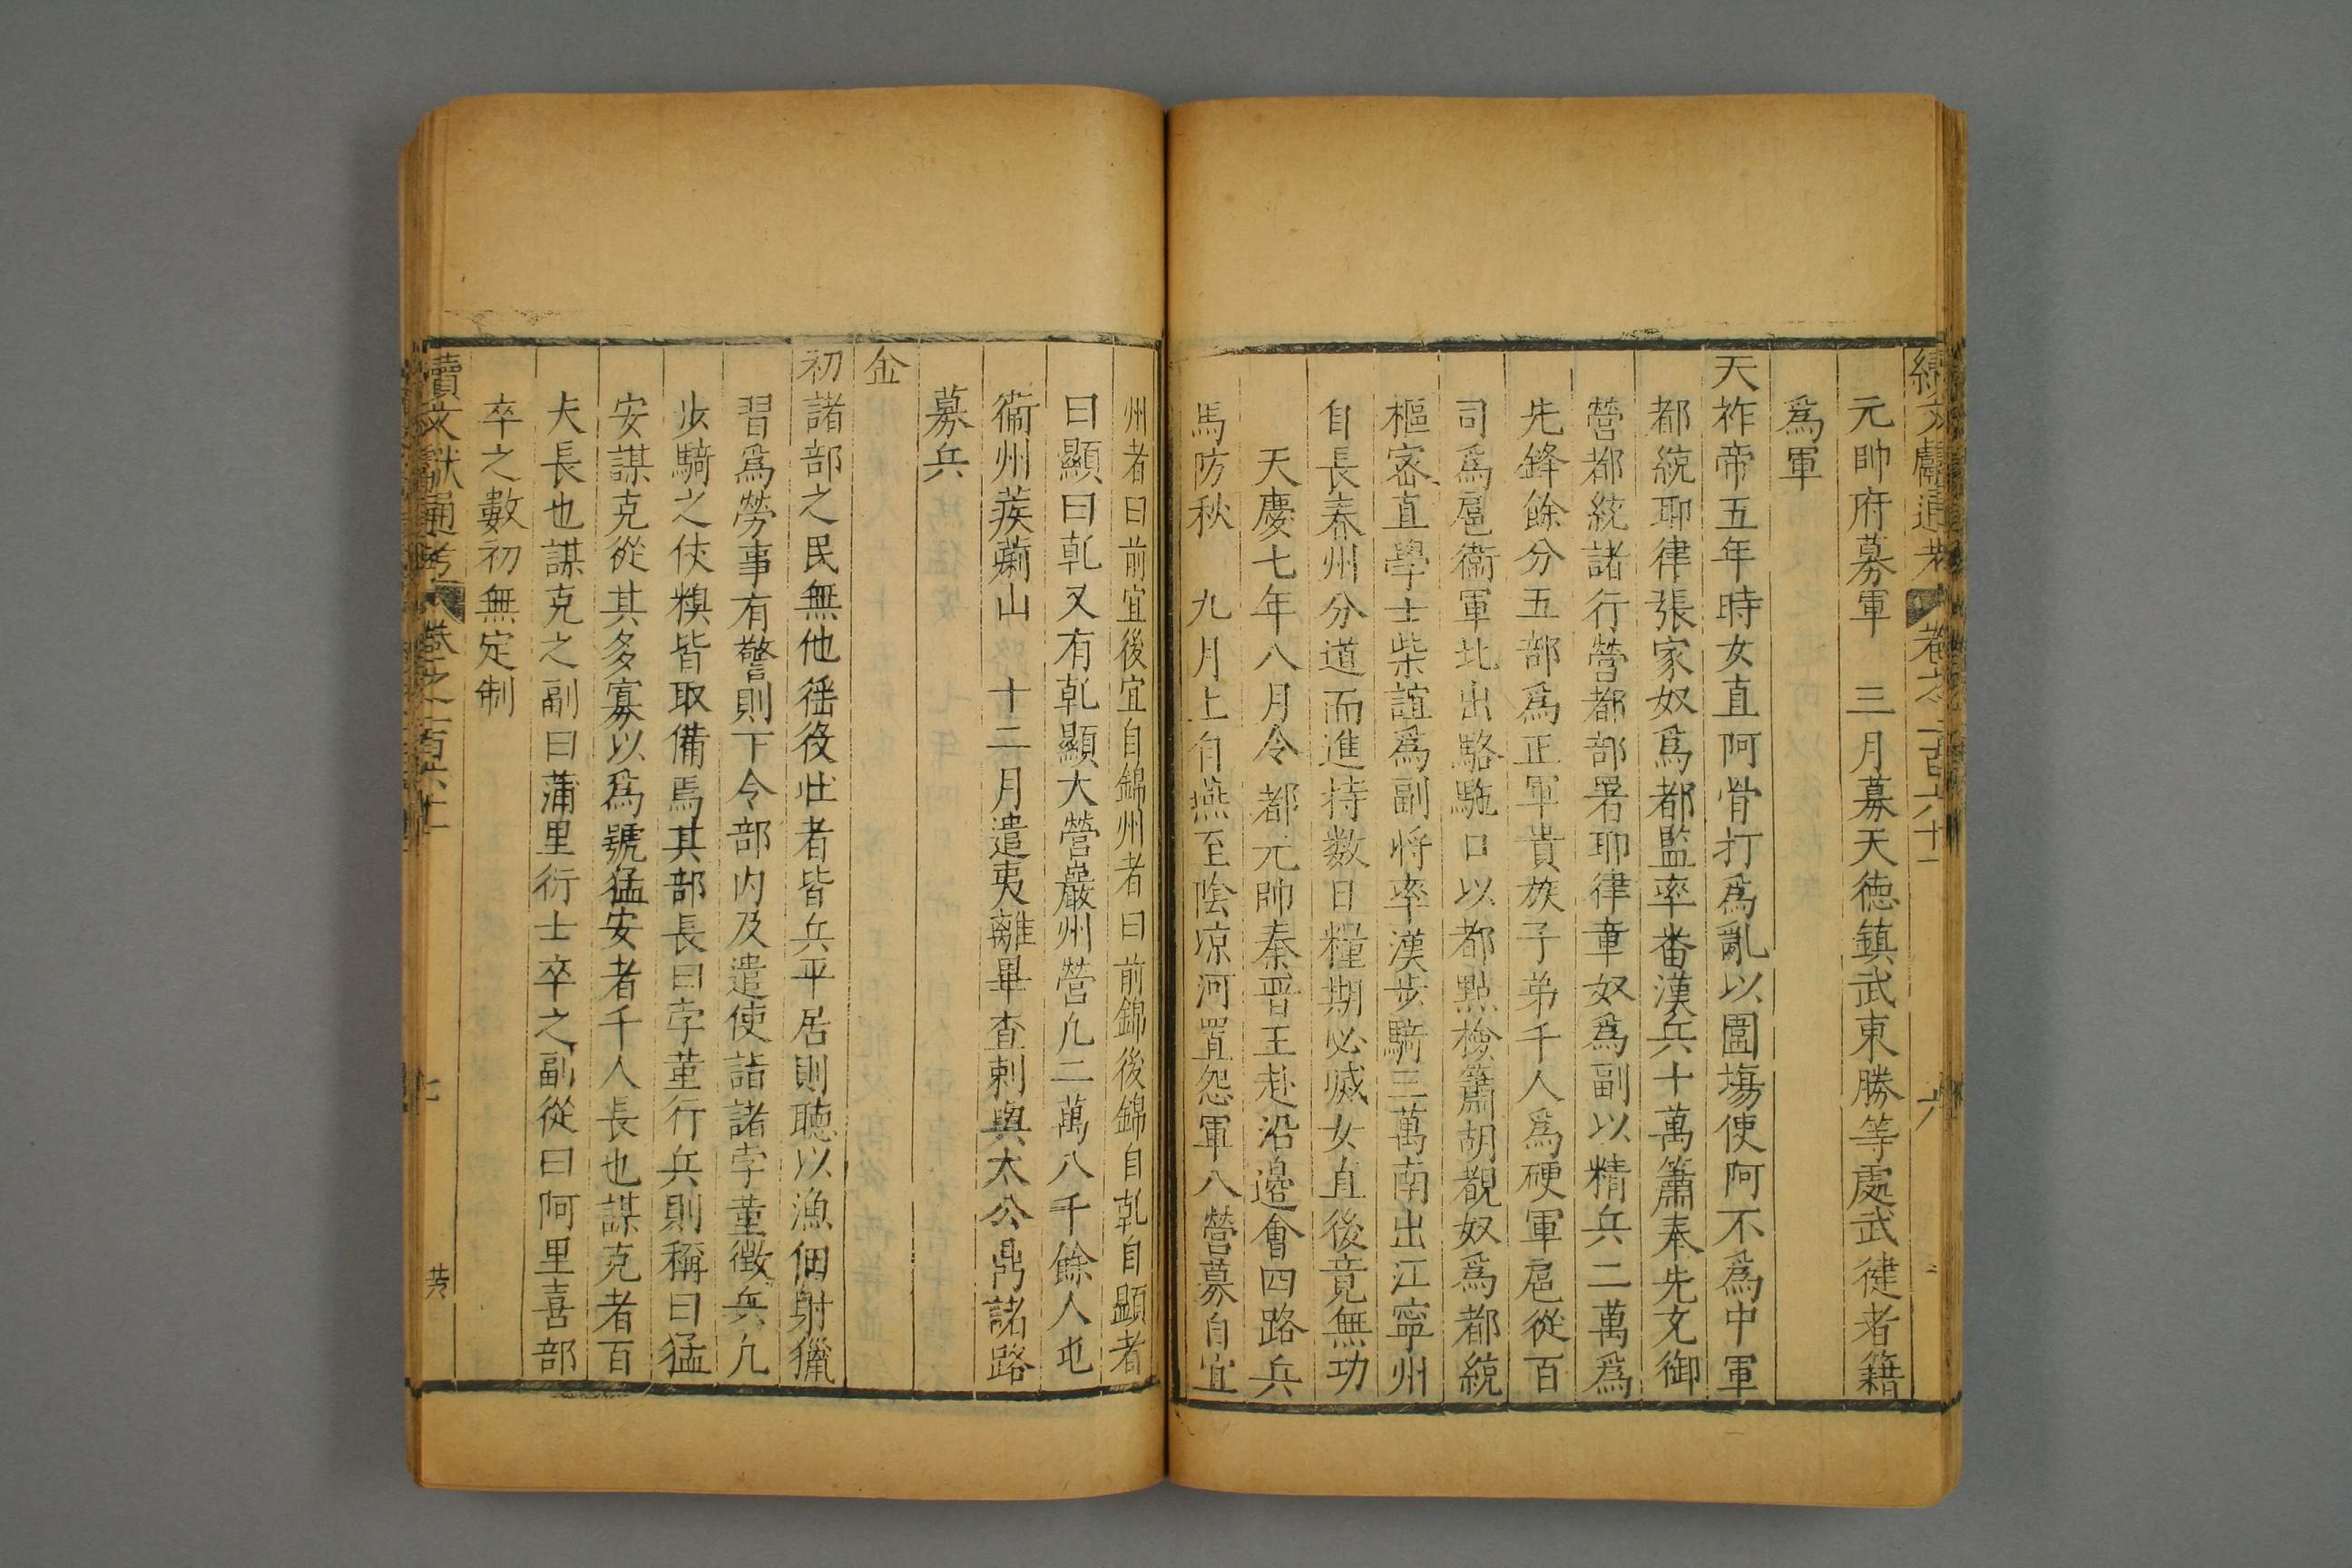 續文獻通考 卷之一百六十一 六
元帥府募軍 三月募天德鎮武東勝等處武健者籍
爲軍
天祚帝五年時女直阿骨打爲亂以圍塲使阿不爲中軍
都統耶律張家奴爲都監率畨漢兵十萬簫奉先充御
營都統諸行營都部署耶律章奴爲副以精兵二萬爲
先鋒餘分五部爲正軍貴族子弟千人爲硬軍扈從百
司爲扈衞軍北出駱駞口以都點檢簫胡覩奴爲都統
樞宻直學士柴誼爲副將率漢步騎三萬南出江寧州
自長春州分道而進持数日糧期必滅女直後竟無功
天慶七年八月令 都元帥秦晋王赴沿邊會四路兵
馬防秋 九月上自燕至陰凉河置怨軍八營募自宜
州者曰前宜後宜自錦州者曰前錦後錦自乹自顯者
曰顯曰乹又有乹顯大營巖州營凢二萬八千餘人屯
衞州蒺蔾山 十二月遣夷離畢查剌與大公鼎諸路
募兵
金
初諸部之民無他徭役壮者皆兵平居則聽以漁佃射獵
習爲勞事有警則下令部内及遣使詣諸孛菫徴兵凢
步騎之使糗皆取備焉其部長曰孛菫行兵則稱曰猛
安謀克從其多寡以爲號猛安者千人長也謀克者百
夫長也謀克之副曰蒲里衍士卒之副從曰阿里喜部
卒之數初無定制
續文獻通考 卷之一百六十一 七